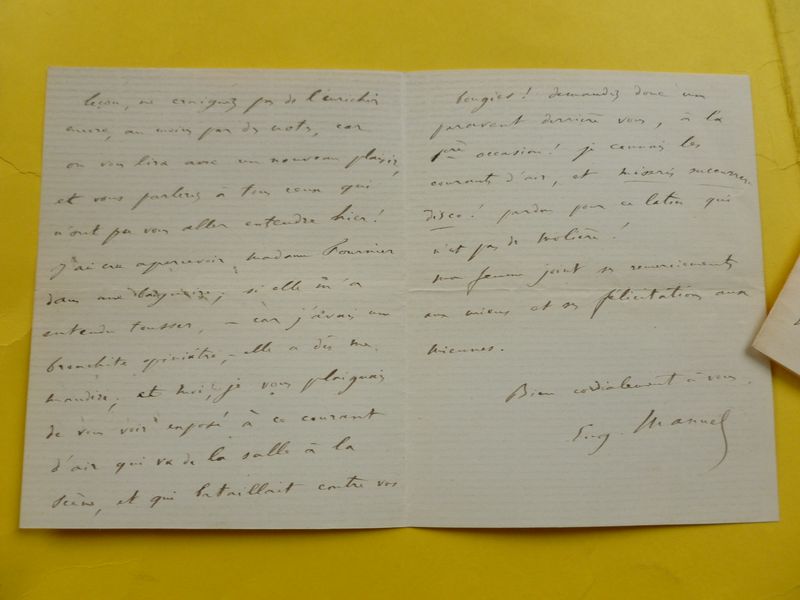 leçon, ne craignez pas de l'enrichir
encore, au moins par des mots, car
on vous lira avec un nouveau plaisir,
et vous parlerez à tous ceux qui
n'ont pu vous aller entendre hier!
J'ai cru apercevoir madame Fournier
dans une baignoire; si elle m'a
entendu tousser, – car j'avais une
bronchite opiniâtre, – elle a dû me
maudire; et moi, je vous plaignais
de vous voir exposé à ce courant
d'air qui va de la salle à la
scène, et qui bataillait contre vos
bougies! demandez donc un
paravent derrière vous, à la
1ère occasion! je connais les
courants d'air, et miseris succurrere
disco! pardon pour ce latin qui
n'est pas de Molière!
Ma femme joint ses remerciements
aux miens et ses félicitations aux
miennes.
Bien cordialement à vous,
Eug. Manuel